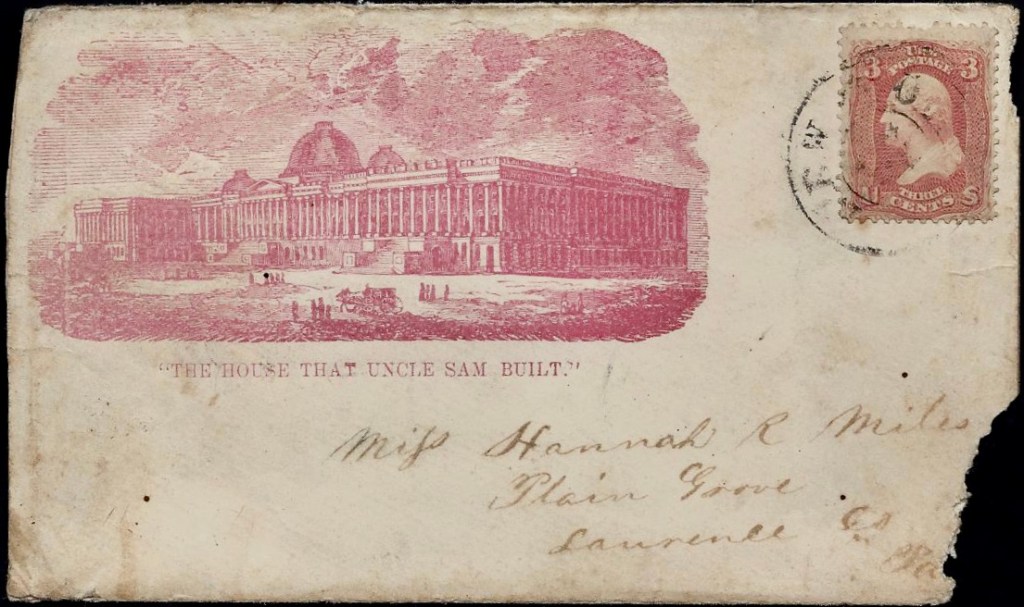 U.S. POSTAGE
3 3
THREE
CENTS
U S
"THE HOUSE THAT UNCLE SAM BUILT."
Miss Hannah R Miles
Plain Grove
Laurence Co
Pa